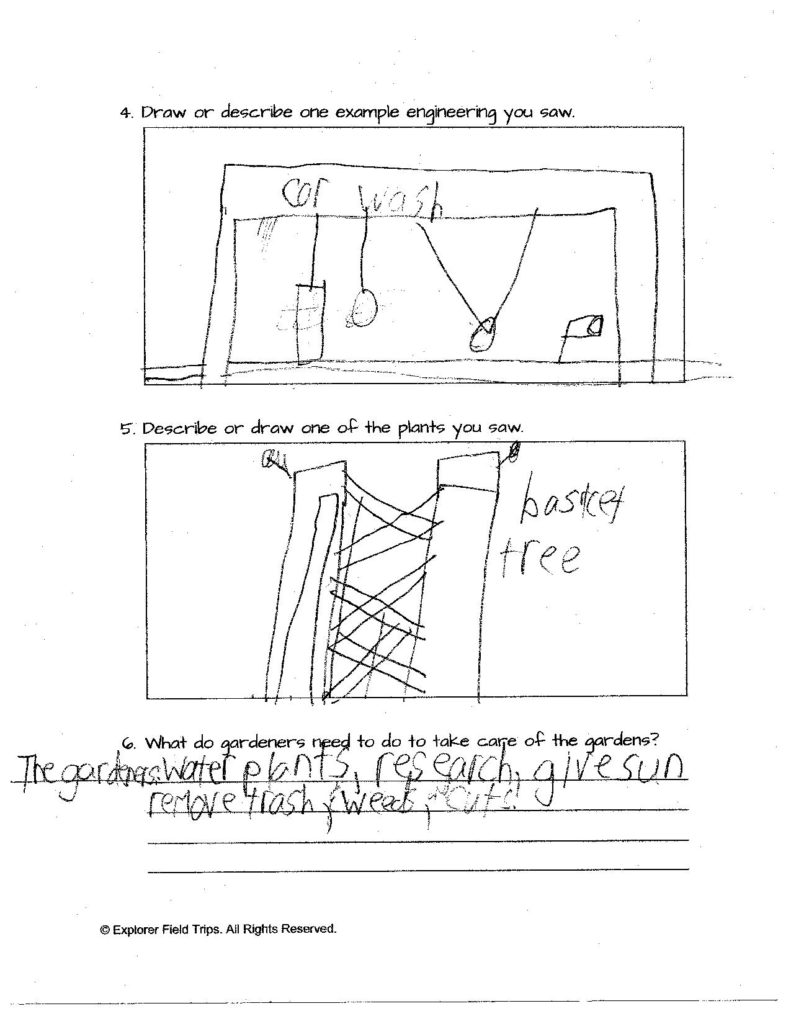 4. Draw or describe one example engineering you saw.
car wash
5. Describe or draw one of the plants you saw.
basket
tree
6. What do gardeners need to do to take care of the gardens?
The gardeners: water plants, research, give sun
remove trash, weeds, cuts.
© Explorer Field Trips. All Rights Reserved.